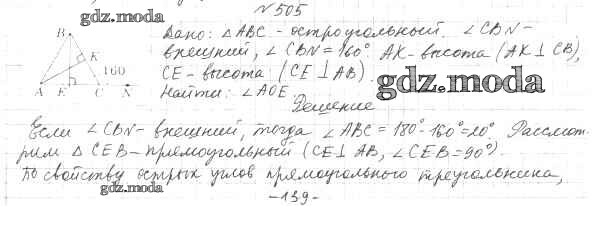 №505
gdz.moda
Дано: △ABC - остроугольный. ∠CBN -
внешний, ∠CBN = 160°. AK - высота (AK⊥CB),
CE - высота (CE⊥AB).
Найти: ∠AOE.
gdz.moda
B
K
160
A E C N
Решение
Если ∠CBN - внешний, тогда ∠ABC = 180°-160°=20°. Рассмот-
рим △CEB - прямоугольный (CE⊥AB, ∠CEB=90°).
По свойству острых углов прямоугольного треугольника,
gdz.moda
-139-